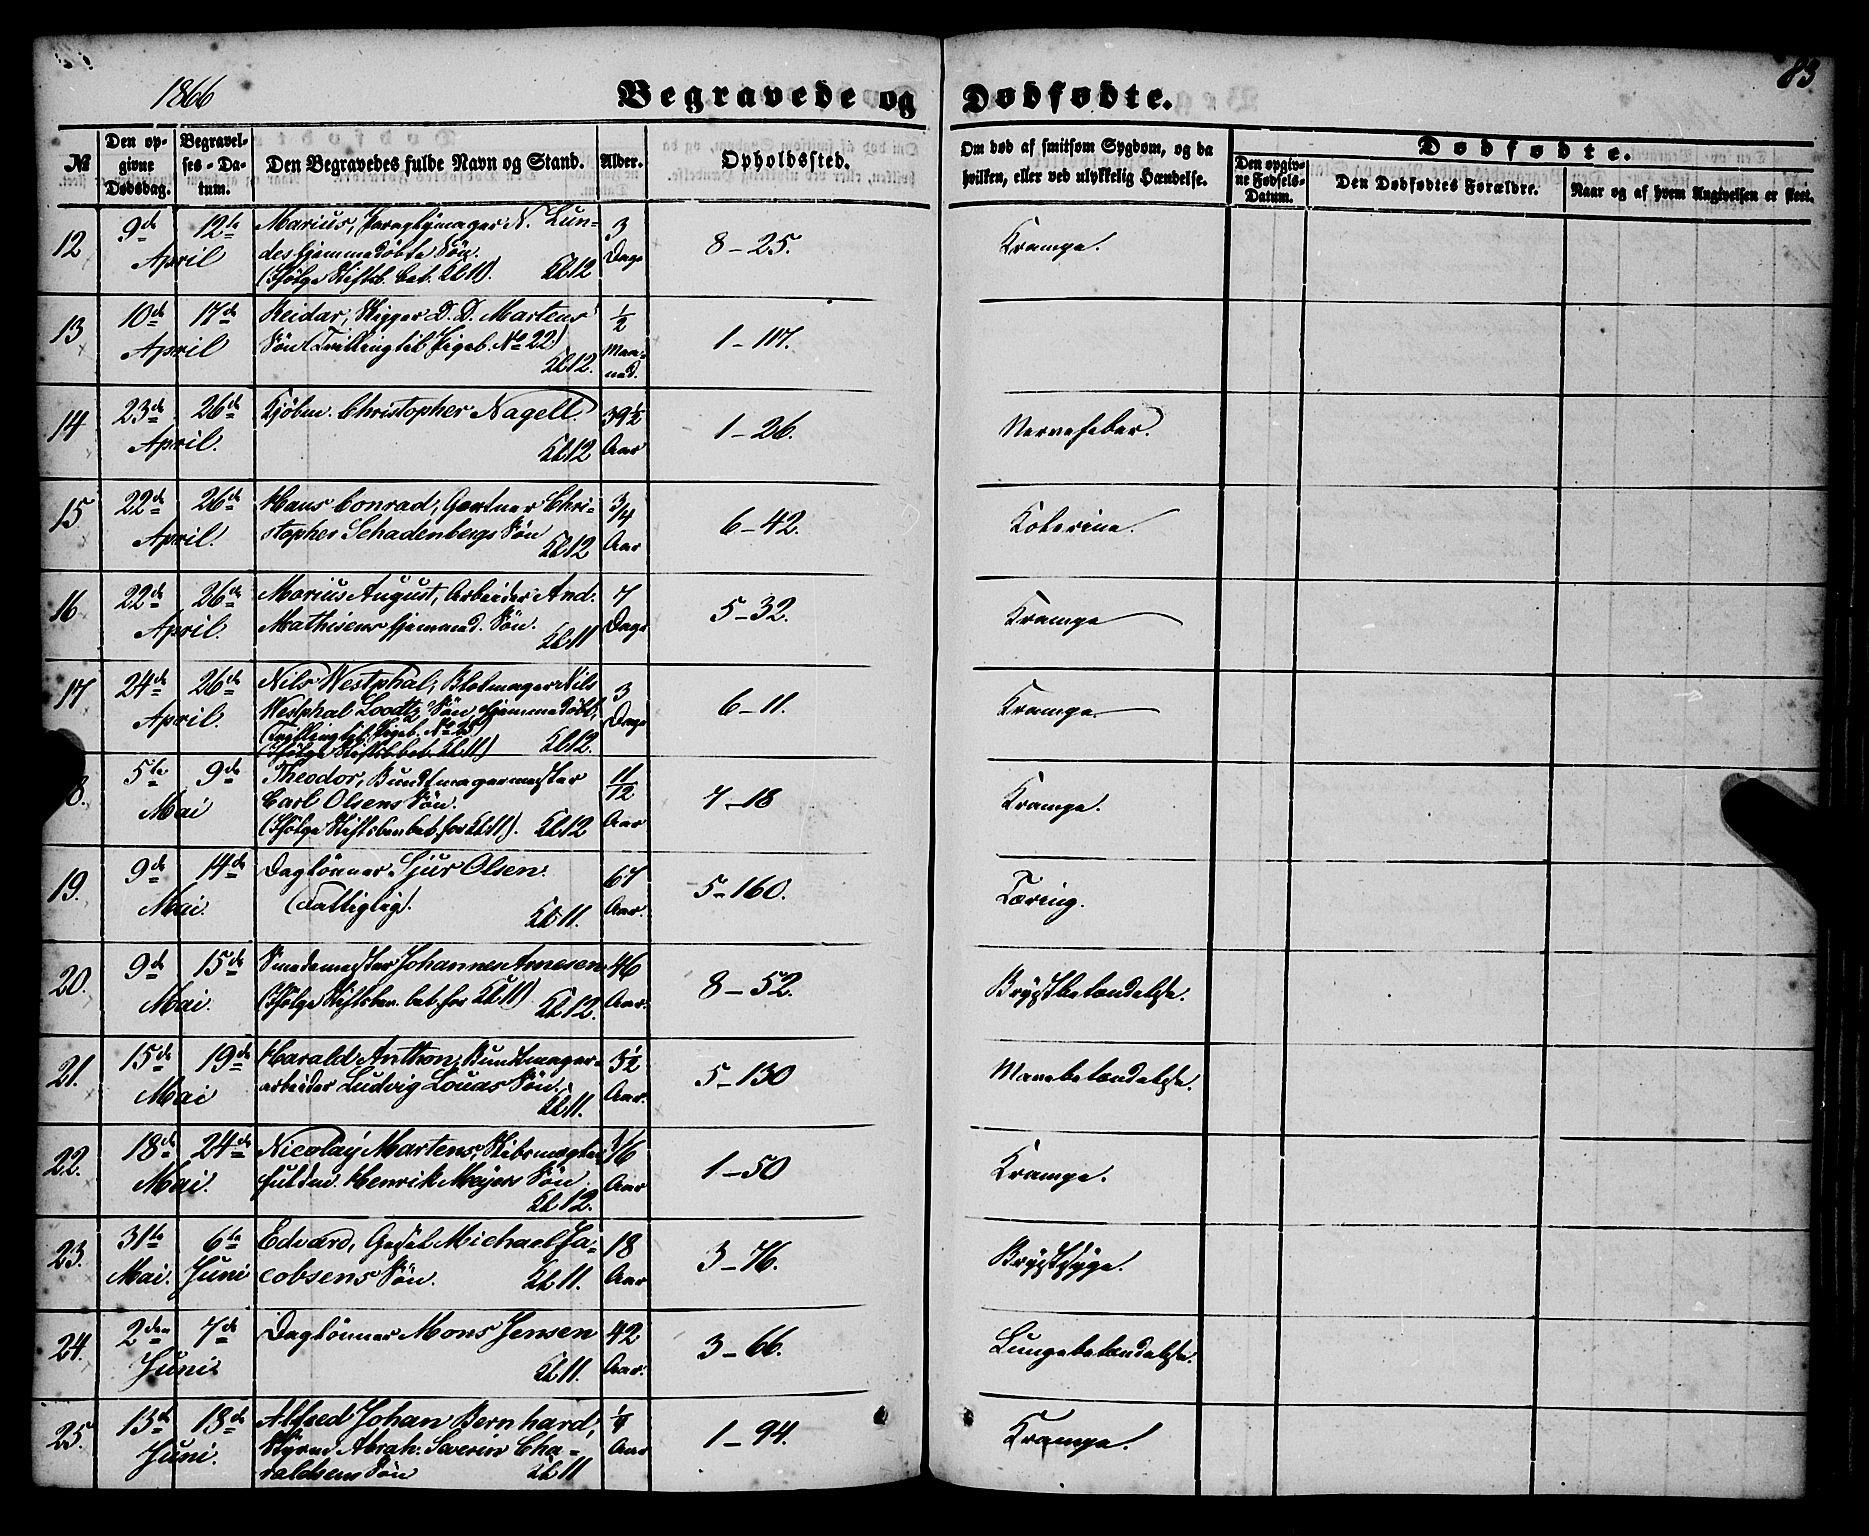 83
1866
Begravede og Dødfødte.
№
Den opgivne Dødsdag.
Begravelses-Datum.
Den Begravedes fulde Navn og Stand.
Alder.
Opholdssted.
Om død af smitsom Sygdom, og da hvilken, eller ved ulykkelig Hændelse.
Dødfødte.
Den opgivne Fødsels-Datum.
Den Dødfødtes Forældre.
Naar og af hvem Angivelsen er skeet.
12 9de 12te Marius, N. Lun- 3 8-25. Krampe.
April des hjemmedøbte Søn. Dage
(Ifølge bet. Kl 11). Kl 12
13 10de 17de Reidar, Skipper D. D. Martens ½ 1-117.
April Søn (Tvilling til Pigeb. No 22) Maa-
Kl 12. ned.
14 23de 26de Kjøbm. Christopher Nagell 39½ 1-26. Nervefeber.
April. Kl 12 Aar
15 22de 26de Hans Conrad, Gartner Chri- ¾ 6-42. Koterine.
April. stopher Schadenbergs Søn Kl 12 Aar
16 22de 26de Marius August, Arbeider And. 7 5-32. Krampe
April. Mathisens hjemmed. Søn. Kl 11 Dage
17 24de 26de Nils Westphal, Blokmager Nils 3 6-11. Krampe.
April. Westphal Loodtz Søn, hjemmedøbt, Dage
(Tvilling til Pigeb. No 25)
(Ifølge bet. Kl 11) Kl 12.
8. 5te 9de Theodor, Bundtmagermester 11/12 7-18 Krampe.
Mai Carl Olsens Søn. Aar
(Ifølge bet. for Kl 11). Kl 12
19. 9de 14de Dagløнner Sjur Olsen. 67 5-160. Tæring.
Mai. (Fattiglig). Kl 11. Aar.
20. 9de 15de Smedemester Johannes Arnesen 46 8-52. Brystbetændelse.
Mai. (Ifølge bet. for Kl 11) Kl 12. Aar.
21. 15de 19de Harald Anthon, Bundtmager- 3½ 5-130 Mavebetændelse.
Mai arbeider Ludvig Louas Søn. Kl 11. Aar.
22. 18de 24de Nicolay Martens, Skibsmægler 1/6 1-50 Krampe.
Mai. fuldm. Henrik Meyers Søn. Aar
Kl 12.
23. 31te 6te Edvard, Gesel Michael Ja- 18 3-76. Brystsyge.
Mai. Juni cobsens Søn. Kl 11. Aar
24. 2den 7de Dagløнner Mons Jensen 42 3-66. Lungebetændelse.
Juni Kl 11. Aar.
25. 13de 18de Alfred Johan Bernhard, ¼ 1-94. Krampe.
Juni. Styrm. Abrah: Severin Cha- Aar
raldsens Søn Kl 11